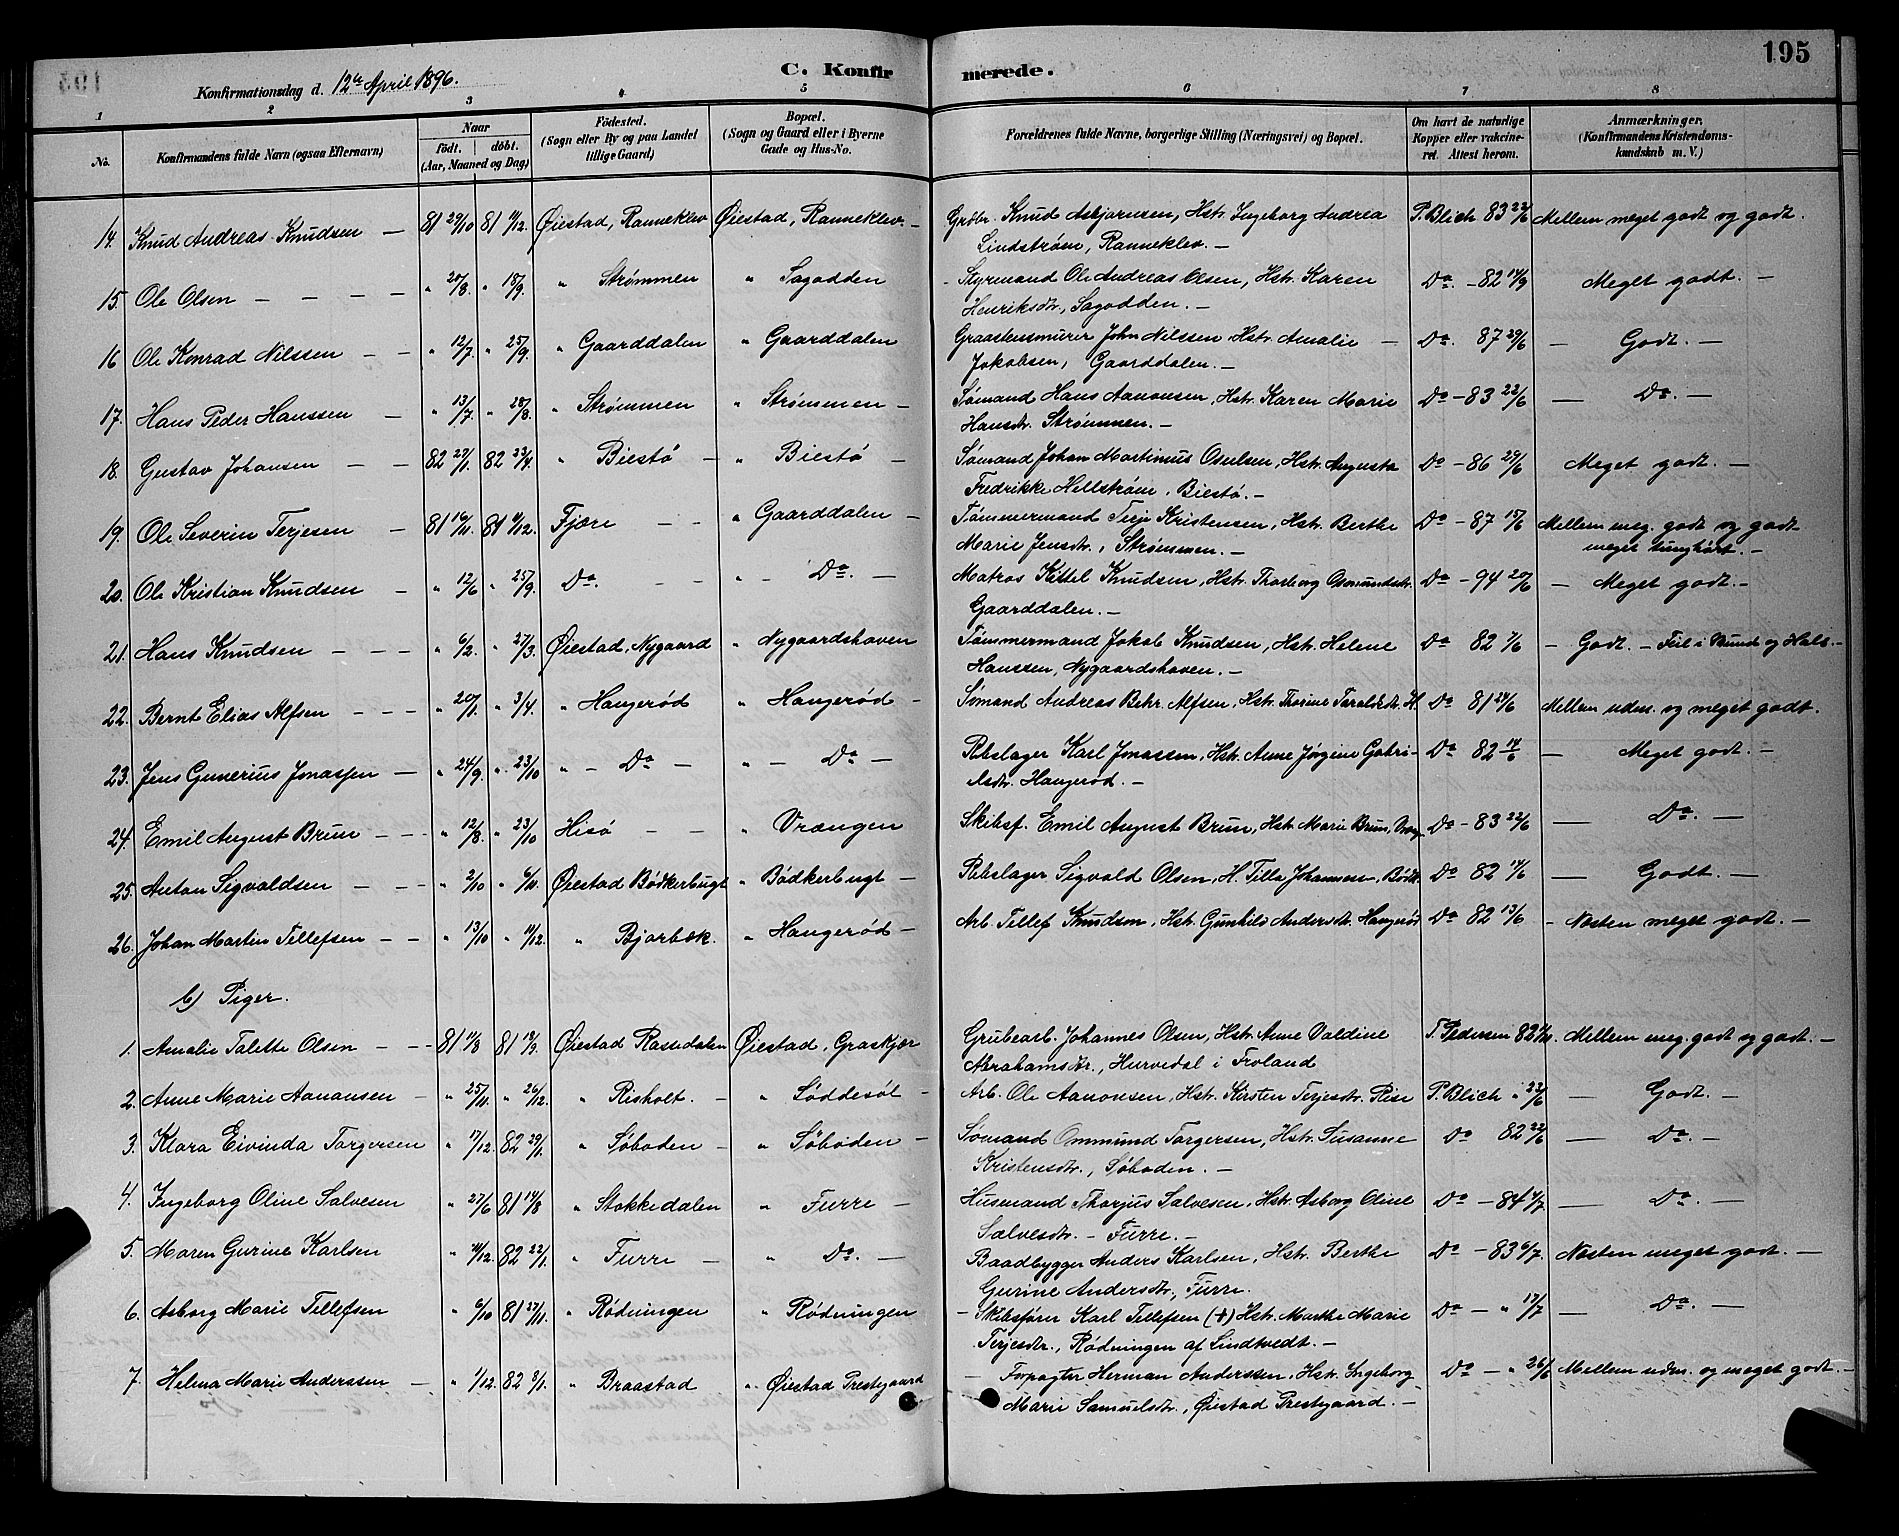 195
C. Konfirmerede.
Konfirmationsdag d. 12te April 1896.
1 2 3 4 5 6 7 8
No. Konfirmandens fulde Navn (ogsaa Efternavn) Naar födt. döbt. (Aar, Maaned og Dag) Födested. (Sogn eller By og paa Landet tillige Gaard) Bopæl. (Sogn og Gaard eller i Byerne Gade og Hus-No. Forældrenes fulde Navne, borgerlige Stilling (Næringsvei) og Bopæl. Om havt de naturlige Kopper eller vakcineret. Attest herom. Anmærkninger. (Konfirmandens Kristendomskundskab m. V.)
14. Knud Andreas Knudsen — 81 29/10 81 11/12. Øiestad, Ranneklev Øiestad, Ranneklev. — Grdbr. Knud Asbjørnsen, Hstr. Ingeborg Andrea P. Blich 83 22/6 Mellem meget godt og godt.
Lindstrøm, Ranneklev. —
15. Ole Olsen — — — — " 20/8. " 18/9. " Strømmen " Sagodden - Styrmand Ole Andreas Olsen, Hstr. Karen Do. — 82 14/9 Meget godt. —
Henriksdtr., Sagodden. —
16 Ole Konrad Nilssen — — " 12/7. " 25/9. " Gaarddalen " Gaarddalen Graastensmurer John Nilssen Hstr. Amalie — Do. 87 29/6 — Godt. —
Jakobsen, Gaarddalen. —
17. Hans Peder Hanssen — " 13/7. " 28/8. " Strømmen " Strømmen — Sømand Hans Aanonsen, Hstr. Karen Marie Do — 83 22/6 — Do. —
Hansdtr. Strømmen. —
18. Gustav Johansen — — 82 27/1. 82 23/4. " Biestø — " Biestø — Sømand Johan Martinius Oselsen, Hstr. Augusta Do — 86 29/6 Meget godt. —
Fredrikke Hellstrøm, Biestø. —
19. Ole Severin Terjesen — 81 16/11. 81 11/12. Fjære — — " Gaarddalen — Tømmermand Terje Kristensen, Hstr. Berthe Do — 87 15/6 Mellem meg. godt og godt —
Marie Jensdtr., Strømmen. — meget tunghørt. —
20. Ole Kristian Knudsen — " 12/6 " 25/9. Do. — — " — Do. — Matros Kittel Knudsen, Hstr. Thorborg Osmundsdtr. Do — 94 20/6 — Meget godt. —
Gaarddalen. —
21. Hans Knudsen — — — " 6/2. " 27/3. Øiestad, Nygaard " Nygaardshaven Tømmermand Jakob Knudsen, Hstr. Helene Do 82 1/6 — Godt. — Feil i Mund og Hals. —
Hanssen, Nygaardshaven. —
22. Bernt Elias Alfsen — — — " 20/1. " 3/4. " Haugerød " Haugerød — Sømand Andreas Behr. Alfsen, Hstr. Thorine Taraldsdtr. H. Do 81 24/6 Mellem udm. og meget godt.
23. Jens Gunerius Jonassen — " 24/9. " 23/10 " — Do — " — Do — Rebslager Karl Jonassen, Hstr. Anne Jørgine Gabri- Do 82 14/6 — Meget godt. —
elsdtr. Haugerød. —
24. Emil August Brun — — — " 12/8. " 23/10 Hisø — — " Vrængen Skibsf. Emil August Brun, Hstr. Marie Brun, Vræng. Do — 83 22/6 — Do. —
25. Anton Sigvaldsen — — — " 2/10 " 6/11. Øiestad Bødkerbugt " Bødkerbugt — Rebslager Sigvald Olsen, H. Tilla Johannesen, Bødk. Do 82 14/6 — Godt. —
26. Johan Martin Tellefsen — — " 13/10 " 11/12. " Bjorbæk. " Haugerød — Arb. Tellef Knudsen, Hstr. Gunhild Andersdtr. Haugerød Do 82 13/6 - Næsten meget godt. —
b) Piger.
1. Amalie Talette Olsen — — 81 11/8 81 18/9. Øiestad Rassedalen Øiestad, Graskjær Grubearb. Johannes Olsen, Hstr. Anne Valdine T. Pedersen 82 Mellem meg. godt og godt. —
Abrahamsdtr., Hurvedal i Froland
2. Anne Marie Aanonsen — " 25/11. " 26/12. " Risholt. — " Løddesøl — Arb. Ole Aanonsen, Hstr. Kirsten Terjesdtr. Rise P. Blich " 23/6 — Godt. —
3. Klara Eivinda Torgersen " 17/12. 82 29/1. " Søboden — " Søboden — Sømand Ommund Torgersen, Hstr. Susanne Do 82 22/6 — Do. —
Kristensdtr., Søboden. —
4. Ingeborg Oline Salvesen " 27/6 81 14/8 " Stokkedalen " Furre — Husmand Thorjus Salvesen, Hstr. Asborg Oline Do — 84 4/7 — Do. —
Salvesdtr. — Furre. —
5. Maren Gurine Karlsen " 11/12. 82 22/1. " Furre — " Do. — Baadbygger Anders Karlsen, Hstr. Berthe Do — 83 6/7. Næsten meget godt. —
Gurine Andersdtr., Furre.
6. Asborg Marie Tellefsen " 6/10 81 27/11. " Rødningen " Rødningen — Skibsfører Karl Tellefsen (+) Hstr. Marthe Marie Do — " 17/7 — Do. —
Terjesdtr., Rødningen af Lindtvedt. —
7. Helena Marie Anderssen — " 1/12. 82 8/1. " Braastad " Øiestad Prestegaard — Forpagter Herman Anderssen, Hstr. Ingeborg Do — " 26/6 Mellem udm. og meget godt. —
Marie Samuelsdtr., Øiestad Prestegaard. —